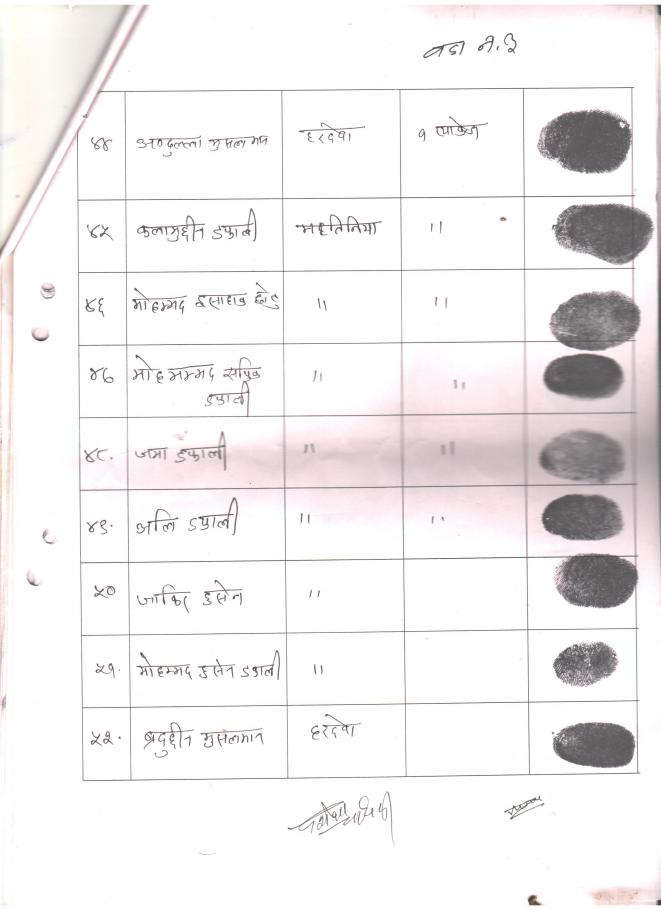 वडा नं. ३
४४ अब्दुल्ला मुसलमान हरदेवा १ प्याकेज
४५ कलामुद्दीन डफाली महतिनिया "
४६ मोहम्मद इसाहाक " "
४७ मोहमम्मद सफिक " "
डफाली
४८. जमा डफाली " "
४९. अलि डफाली " "
५० जाकिर हुसेन "
५१. मोहम्मद हुसेन डफाली "
५२. मुसलमान हरदेवा